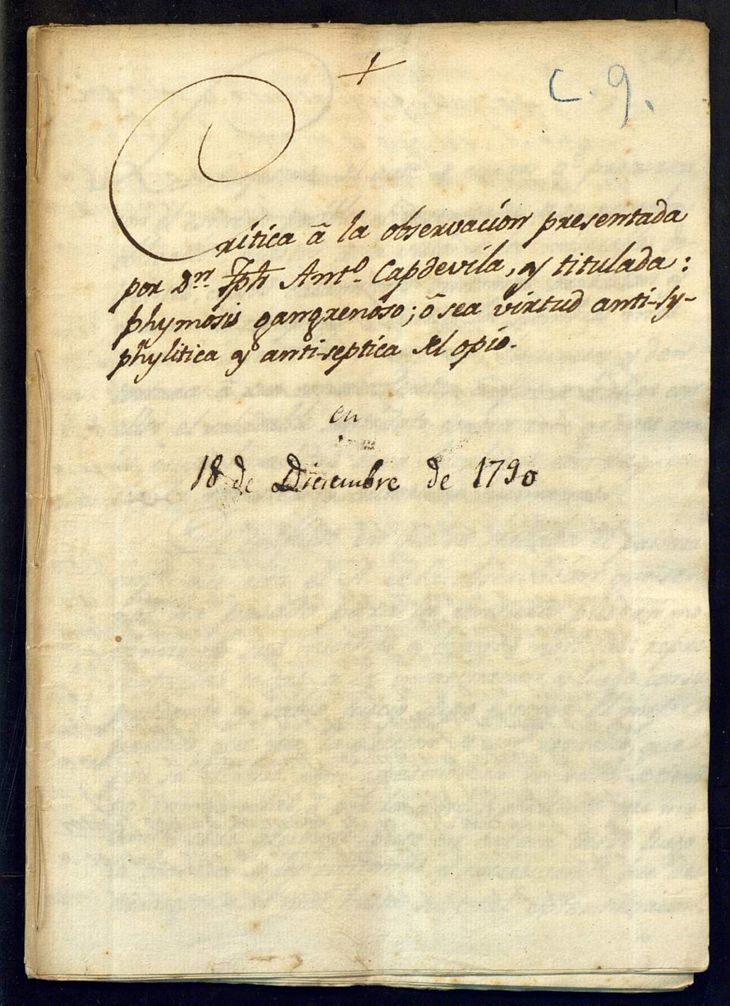 C. 9.
Crítica â la observación presentada
por Dn. Jph Anto. Capdevila, y titulada:
phymosis gangrenoso; ô sea virtud anti-sy-
phylitica y anti-septica del opio.
en
18 de Diciembre de 1790